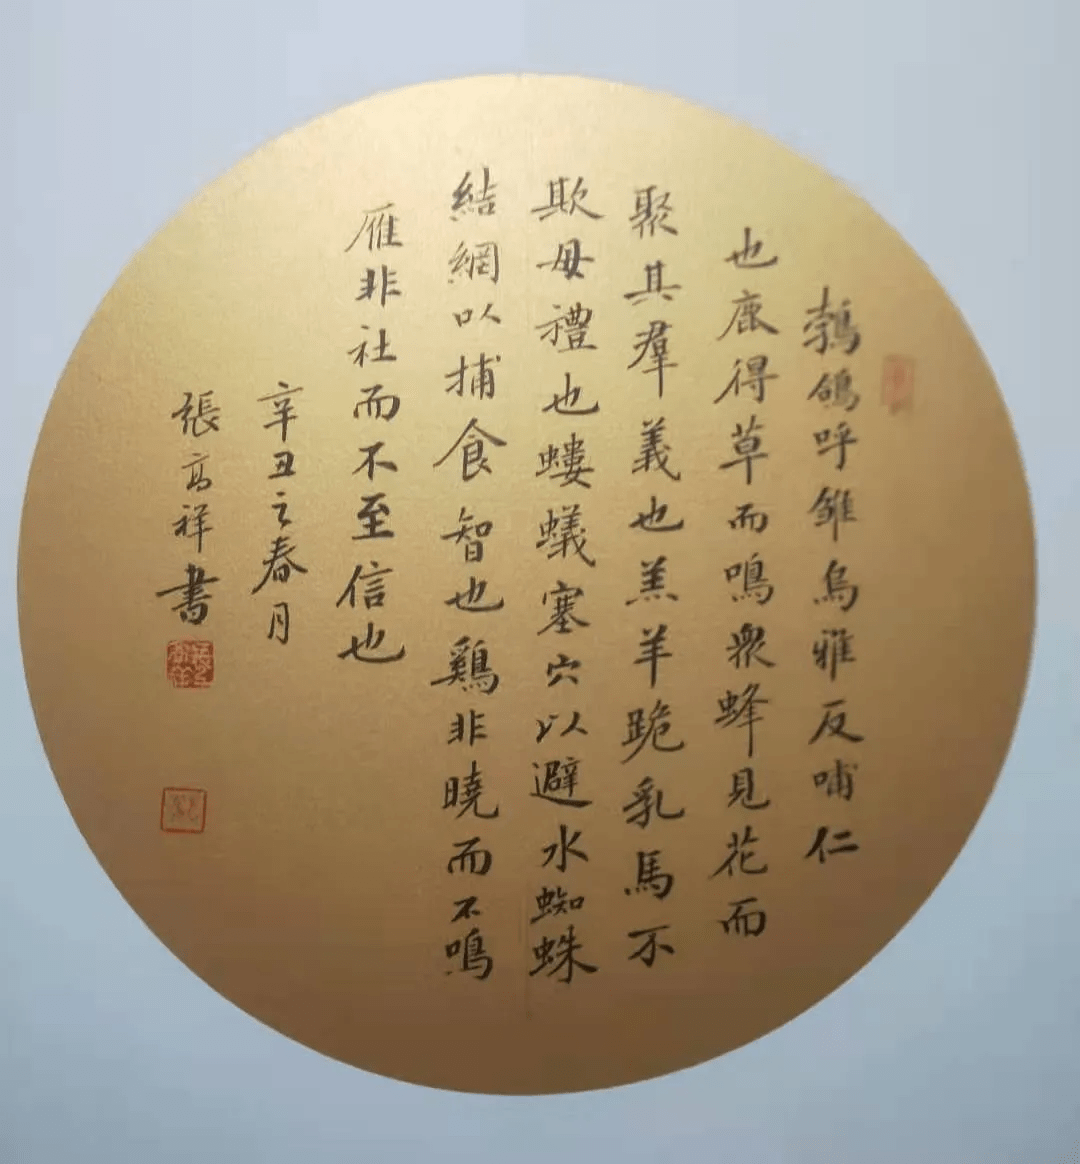 鵓鴿呼雛烏雅反哺仁
也鹿得草而鳴衆蜂見花而
聚其羣義也羔羊跪乳馬不
欺母禮也螻蟻塞穴以避水蜘蛛
結網以捕食智也鷄非曉而不鳴
雁非社而不至信也
辛丑之春月
張高祥書